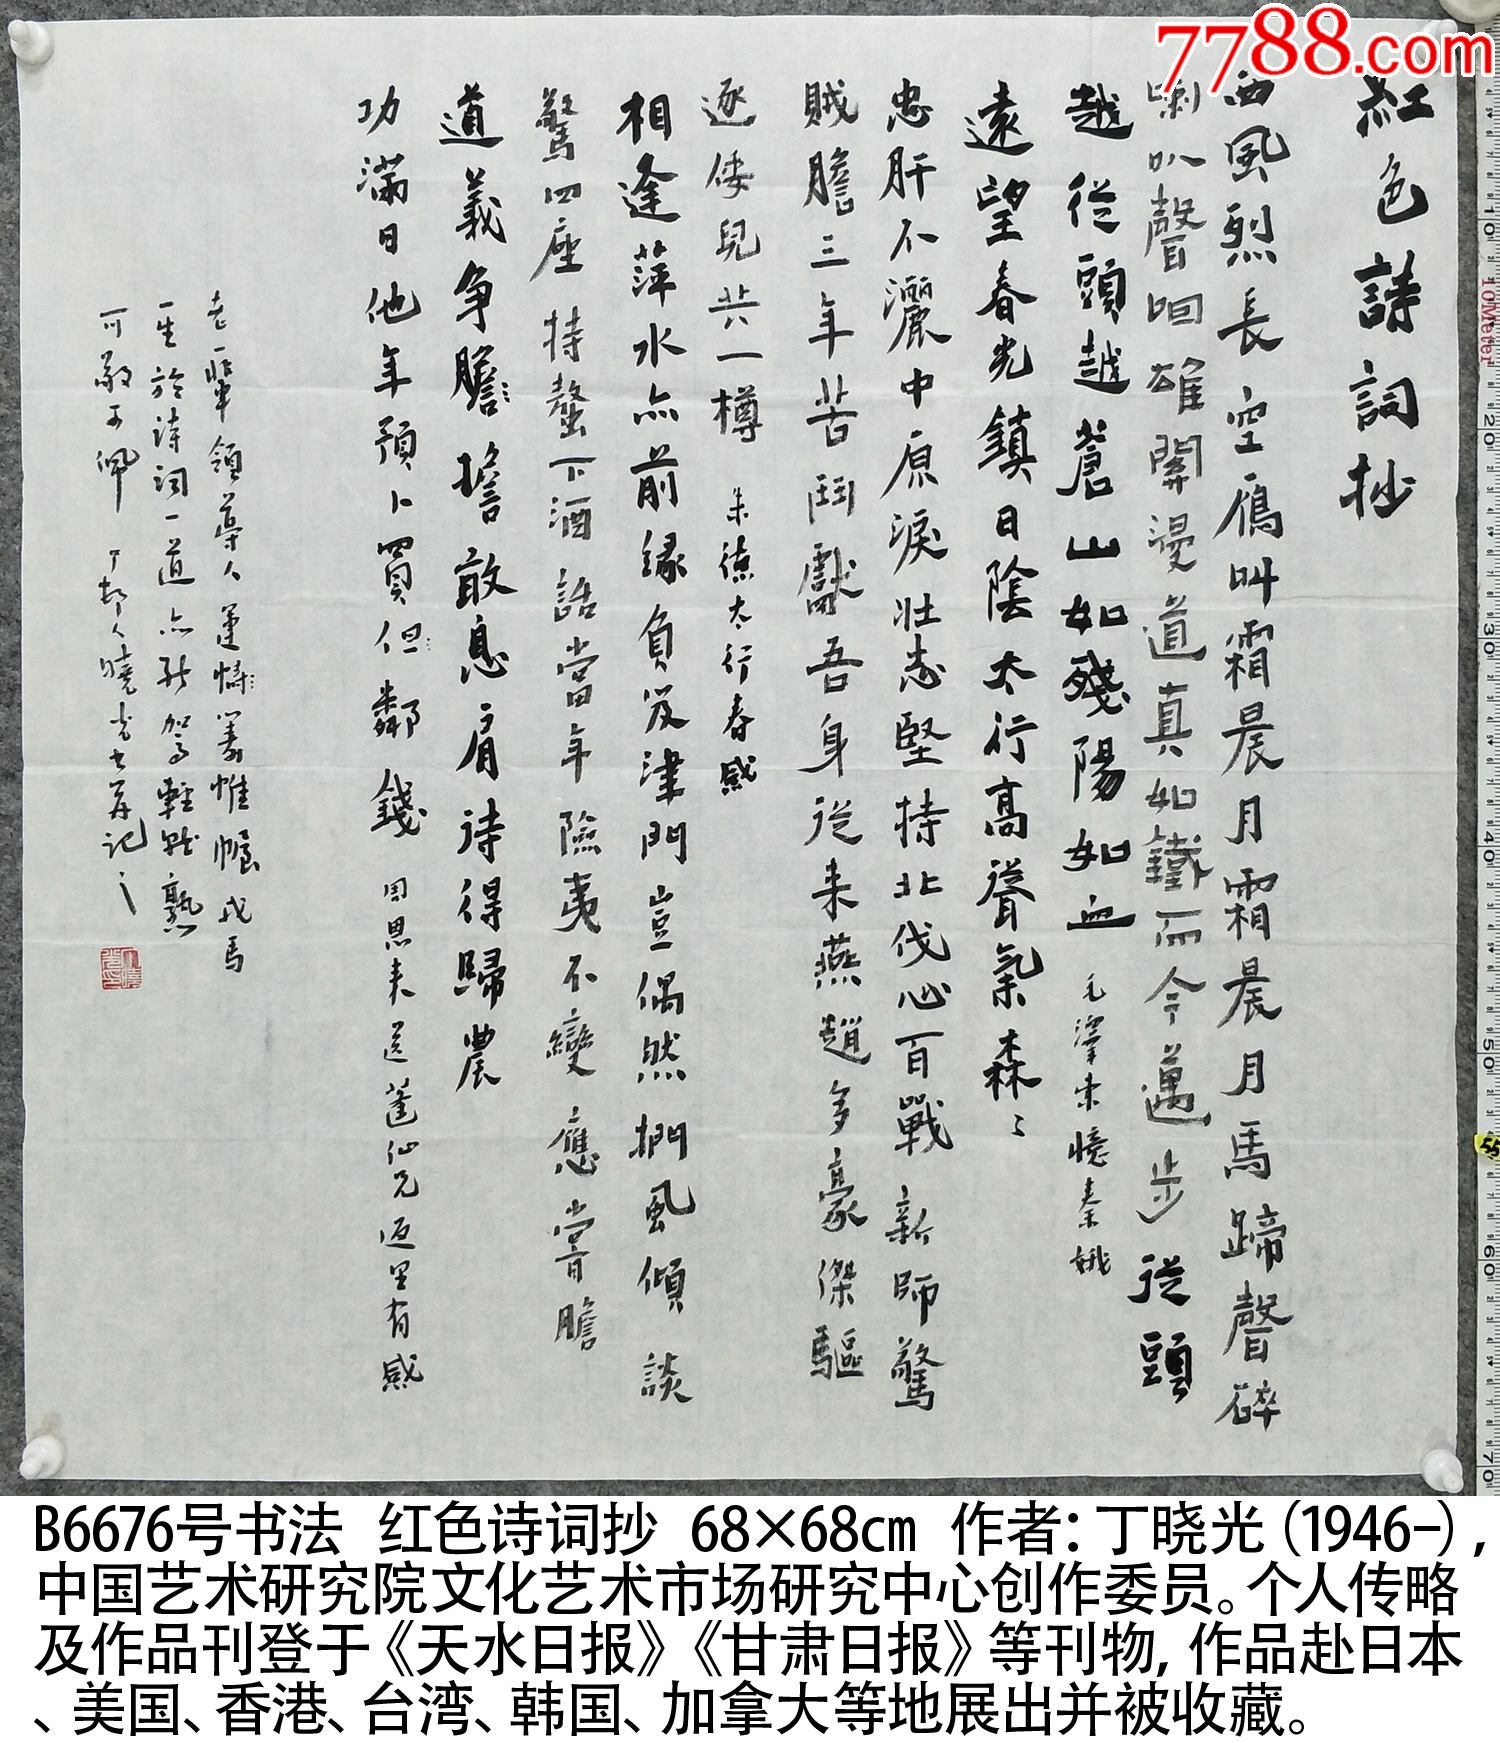 7788.com
紅色詩詞抄
西風烈長空雁叫霜晨月霜晨月馬蹄聲碎
喇叭聲咽雄關漫道真如鐵而今邁步從頭
越從頭越蒼山如殘陽如血 毛澤東憶秦娥
遠望春光鎮日陰太行高聳氣森々
忠肝不灑中原淚壯志堅持北伐心百戰新師驚
賊膽三年苦鬥獻吾身從來燕趙多豪傑驅
逐倭兒共一樽 朱德太行春感
相逢萍水亦前緣負笈津門豈偶然捫風傾談
驚四座持螯下酒話當年險夷不變應嘗膽
道義爭膽擔敢息肩待得歸農
功滿日他年預卜買但鄰錢 周恩來送蓬仙兄返里有感
老一輩領導人運幬籌帷幄戎馬
一生於詩詞一道亦能駕輕就熟
可敬可佩 丁邨人曉光書并記之
10Meter
10 20 30 40 50 60 70
55
B6676号书法 红色诗词抄 68×68cm 作者：丁晓光（1946-），
中国艺术研究院文化艺术市场研究中心创作委员。个人传略
及作品刊登于《天水日报》《甘肃日报》等刊物，作品赴日本
、美国、香港、台湾、韩国、加拿大等地展出并被收藏。